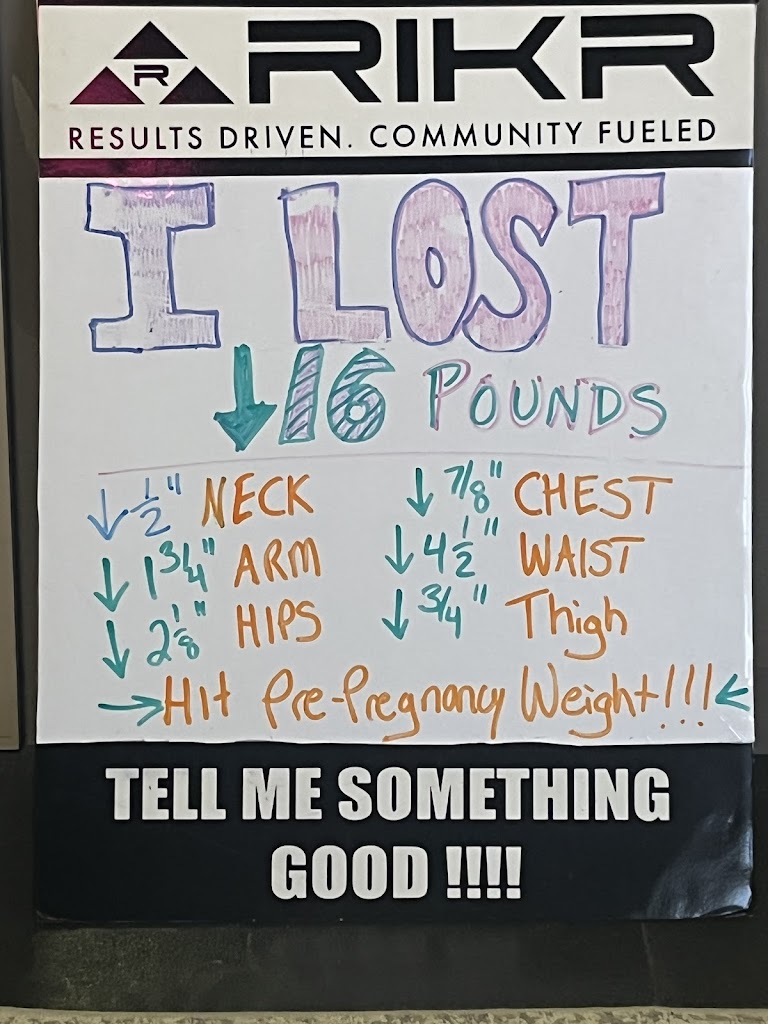 R RIKR
RESULTS DRIVEN. COMMUNITY FUELED
I LOST
↓16 POUNDS
↓ 1/2" NECK ↓ 7/8" CHEST
↓ 1 3/4" ARM ↓ 4 1/2" WAIST
↓ 2 1/8" HIPS ↓ 3/4" Thigh
→Hit Pre-Pregnancy Weight!!!←
TELL ME SOMETHING
GOOD !!!!